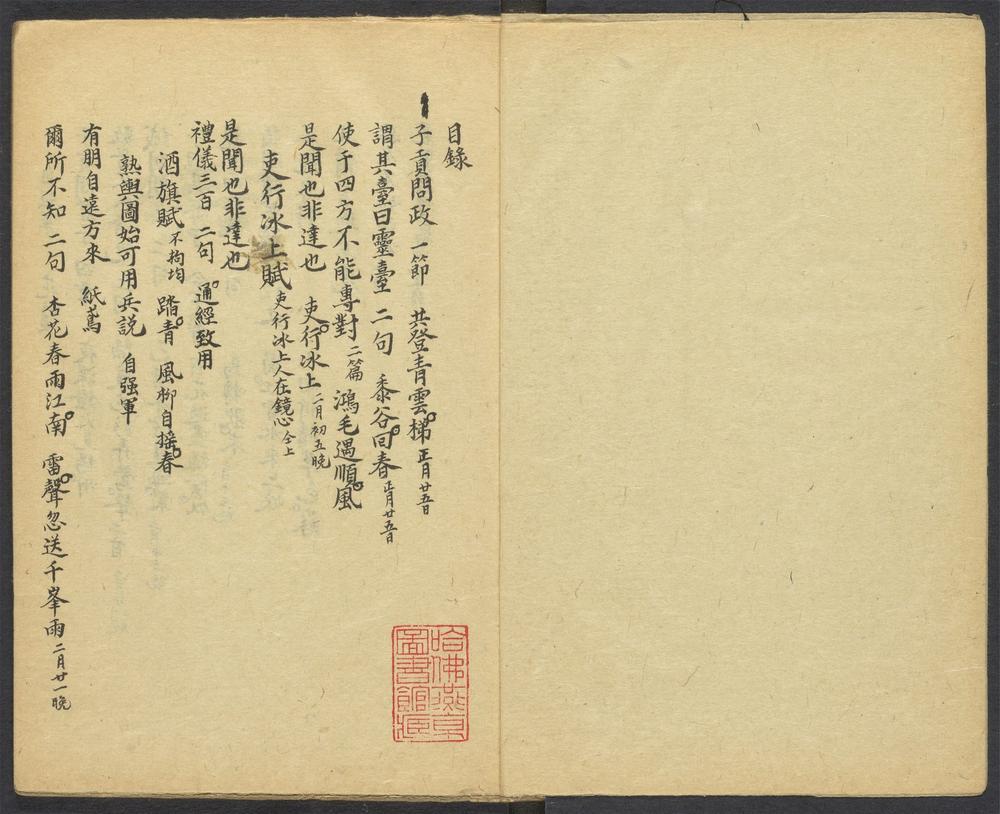 目錄
子貢問政 一節 共登青雲梯 正月廿五日
謂其臺曰靈臺 二句 黍谷回春 正月廿五日
使于四方不能專對 二篇 鴻毛遇順風
是聞也非達也 吏行冰上 二月初五晚
吏行冰上賦 吏行冰上人在鏡心 仝上
是聞也非達也
禮儀三百 二句 通經致用
酒旗賦 不拘均 踏青 風柳自搖春
熟輿圖始可用兵說 自强軍
有朋自遠方來 紙鳶
爾所不知 二句 杏花春雨江南 雷聲忽送千峯雨 二月廿一晚
哈佛燕京
圖書館藏